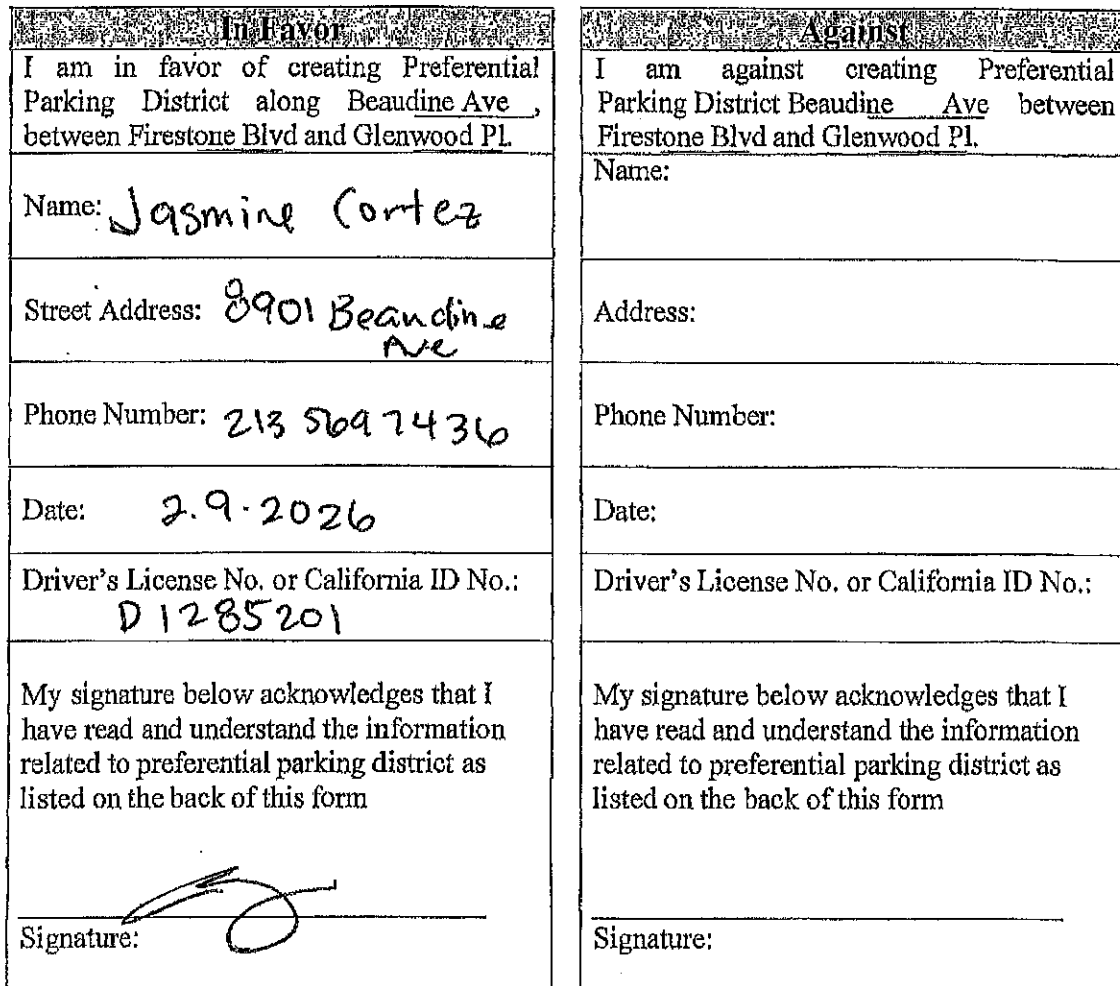 In Favor
I am in favor of creating Preferential
Parking District along Beaudine Ave ,
between Firestone Blvd and Glenwood Pl.
Name: Jasmine Cortez
Street Address: 8901 Beaudine
Ave
Phone Number: 213 569 7436
Date: 2.9.2026
Driver's License No. or California ID No.:
D1285201
My signature below acknowledges that I
have read and understand the information
related to preferential parking district as
listed on the back of this form
Signature:
Against
I am against creating Preferential
Parking District Beaudine Ave between
Firestone Blvd and Glenwood Pl.
Name:
Address:
Phone Number:
Date:
Driver's License No. or California ID No.:
My signature below acknowledges that I
have read and understand the information
related to preferential parking district as
listed on the back of this form
Signature: